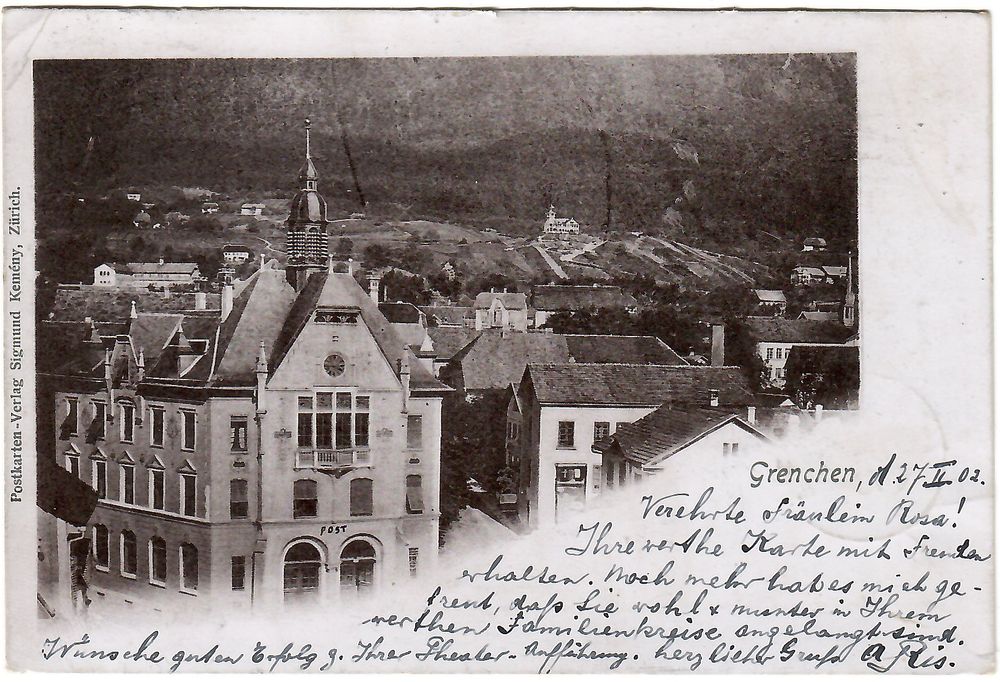 Postkarten-Verlag Sigmund Kemény, Zürich.
POST
Grenchen, d. 27 II 02.
Verehrte Fräulein Rosa!
Ihre werthe Karte mit Freuden
erhalten. Noch mehr hat es mich ge-
freut, daß Sie wohl & munter in Ihrem
werthen Familienkreise angelangt sind.
Wünsche guten Erfolg z. Ihrer Theater-Aufführung. herzlicher Gruß